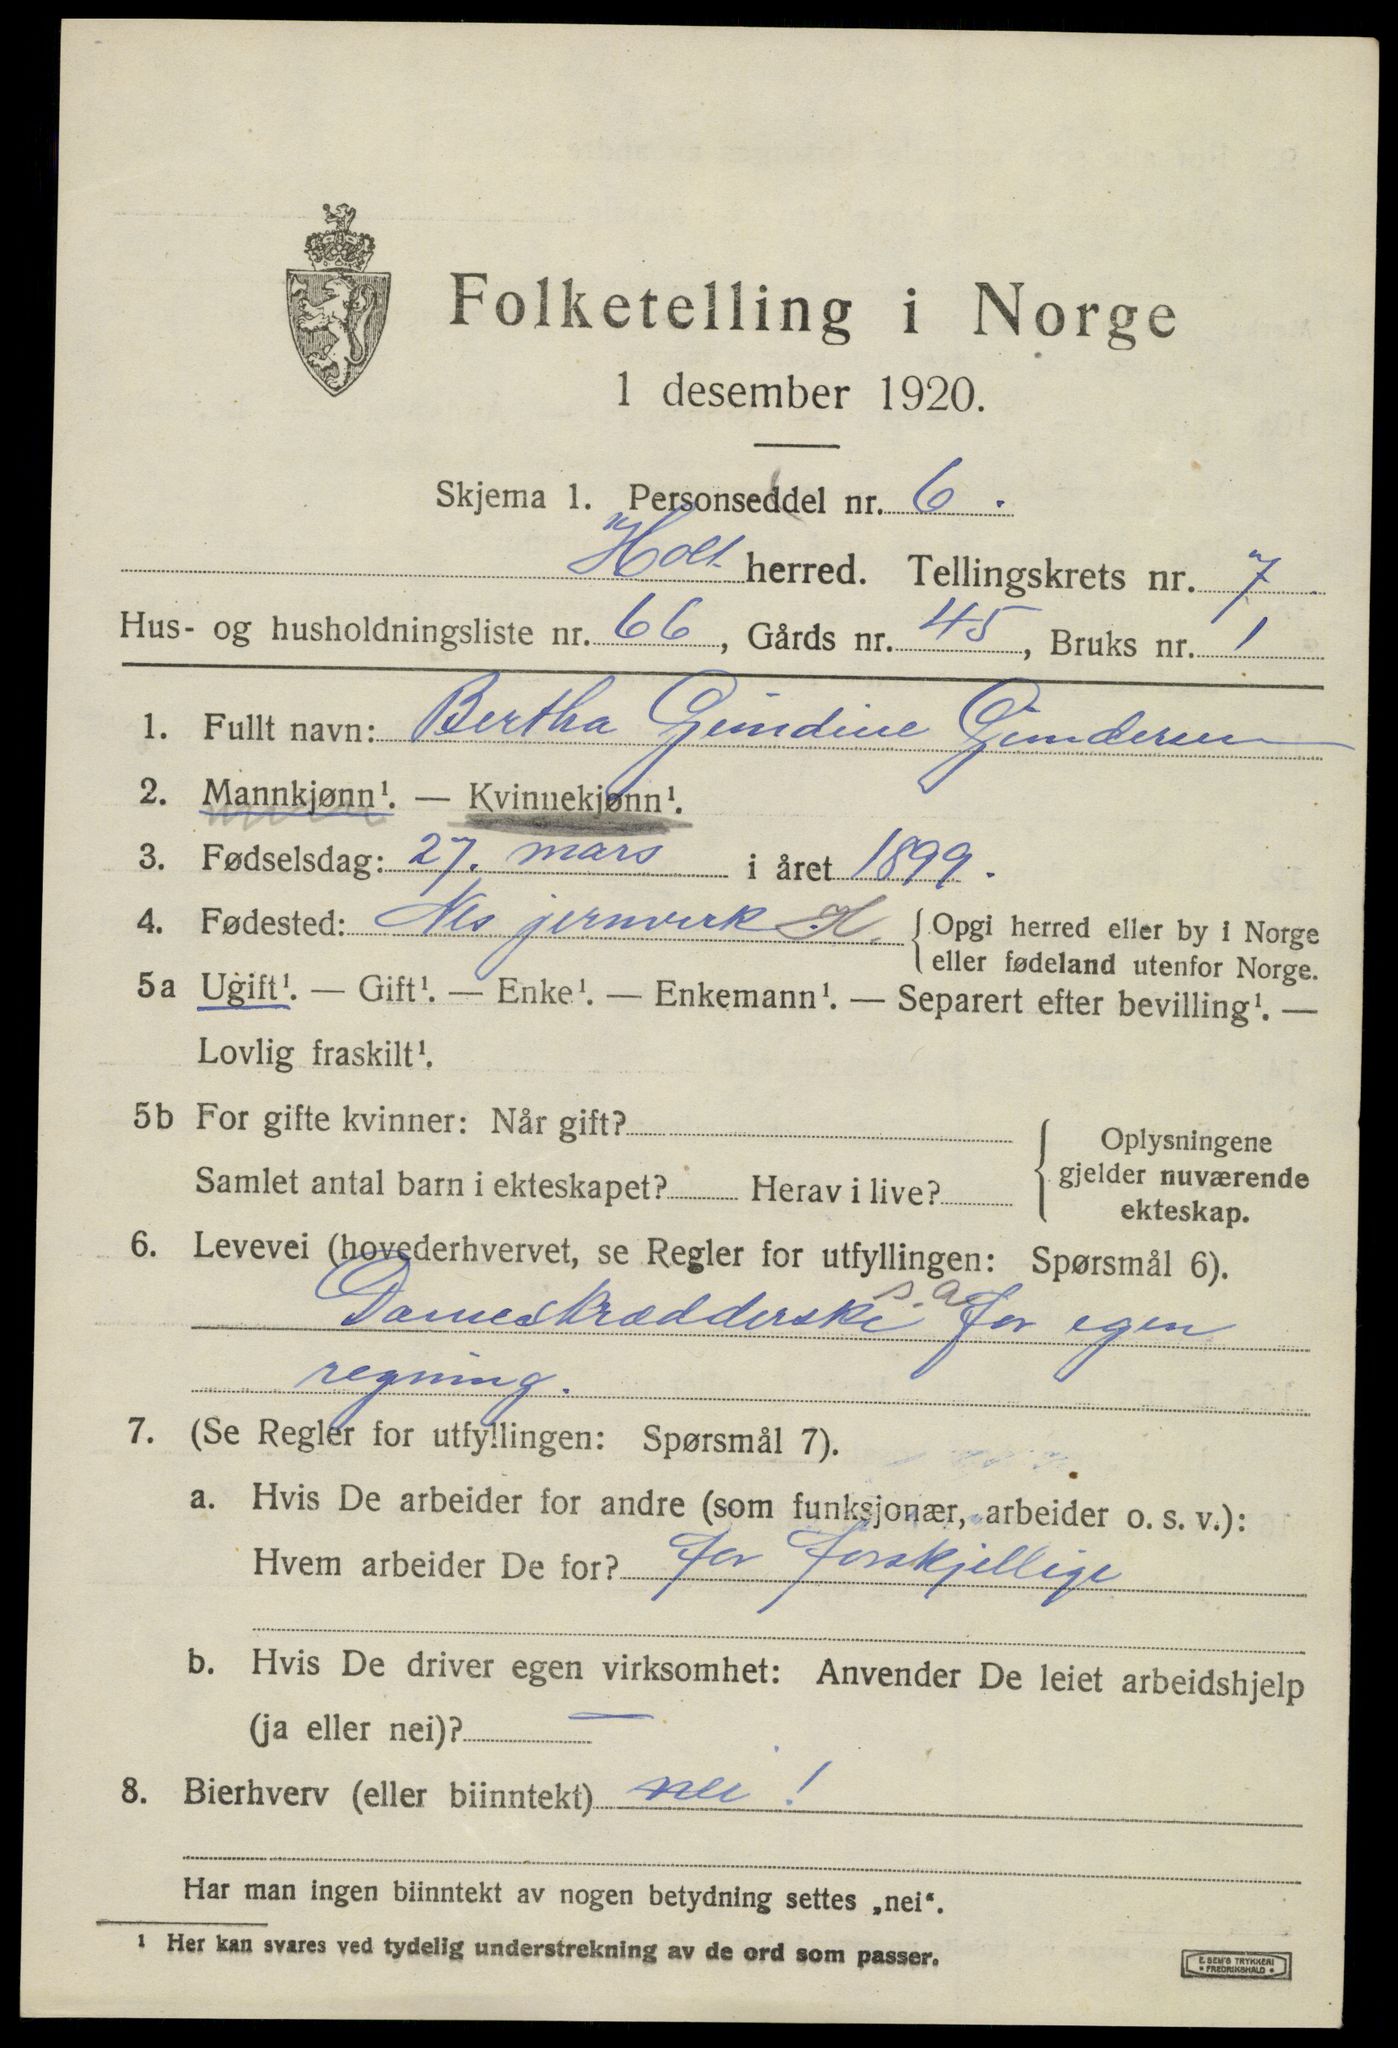 Folketelling i Norge
1 desember 1920.
Skjema 1. Personseddel nr. 6.
Holt herred. Tellingskrets nr. 7
Hus- og husholdningsliste nr. 66, Gårds nr. 45, Bruks nr. 1
1. Fullt navn: Bertha Gundine Gundersen
2. Mannkjønn¹. — Kvinnekjønn¹.
3. Fødselsdag: 27. mars i året 1899.
4. Fødested: Nes jernverk H. { Opgi herred eller by i Norge
eller fødeland utenfor Norge.
5a Ugift¹. — Gift¹. — Enke¹. — Enkemann¹. — Separert efter bevilling¹. —
Lovlig fraskilt¹.
5b For gifte kvinner: Når gift?
Samlet antal barn i ekteskapet? Herav i live?
Oplysningene
gjelder nuværende
ekteskap.
6. Levevei (hovederhvervet, se Regler for utfyllingen: Spørsmål 6).
Dameskrædderske s.a. for egen
regning.
7. (Se Regler for utfyllingen: Spørsmål 7).
a. Hvis De arbeider for andre (som funksjonær, arbeider o. s. v.):
Hvem arbeider De for? for forskjellige
b. Hvis De driver egen virksomhet: Anvender De leiet arbeidshjelp
(ja eller nei)? —
8. Bierhverv (eller biinntekt) nei!
Har man ingen biinntekt av nogen betydning settes „nei“.
¹ Her kan svares ved tydelig understrekning av de ord som passer.
E. SEM'S TRYKKERI
* FREDRIKSHALD *